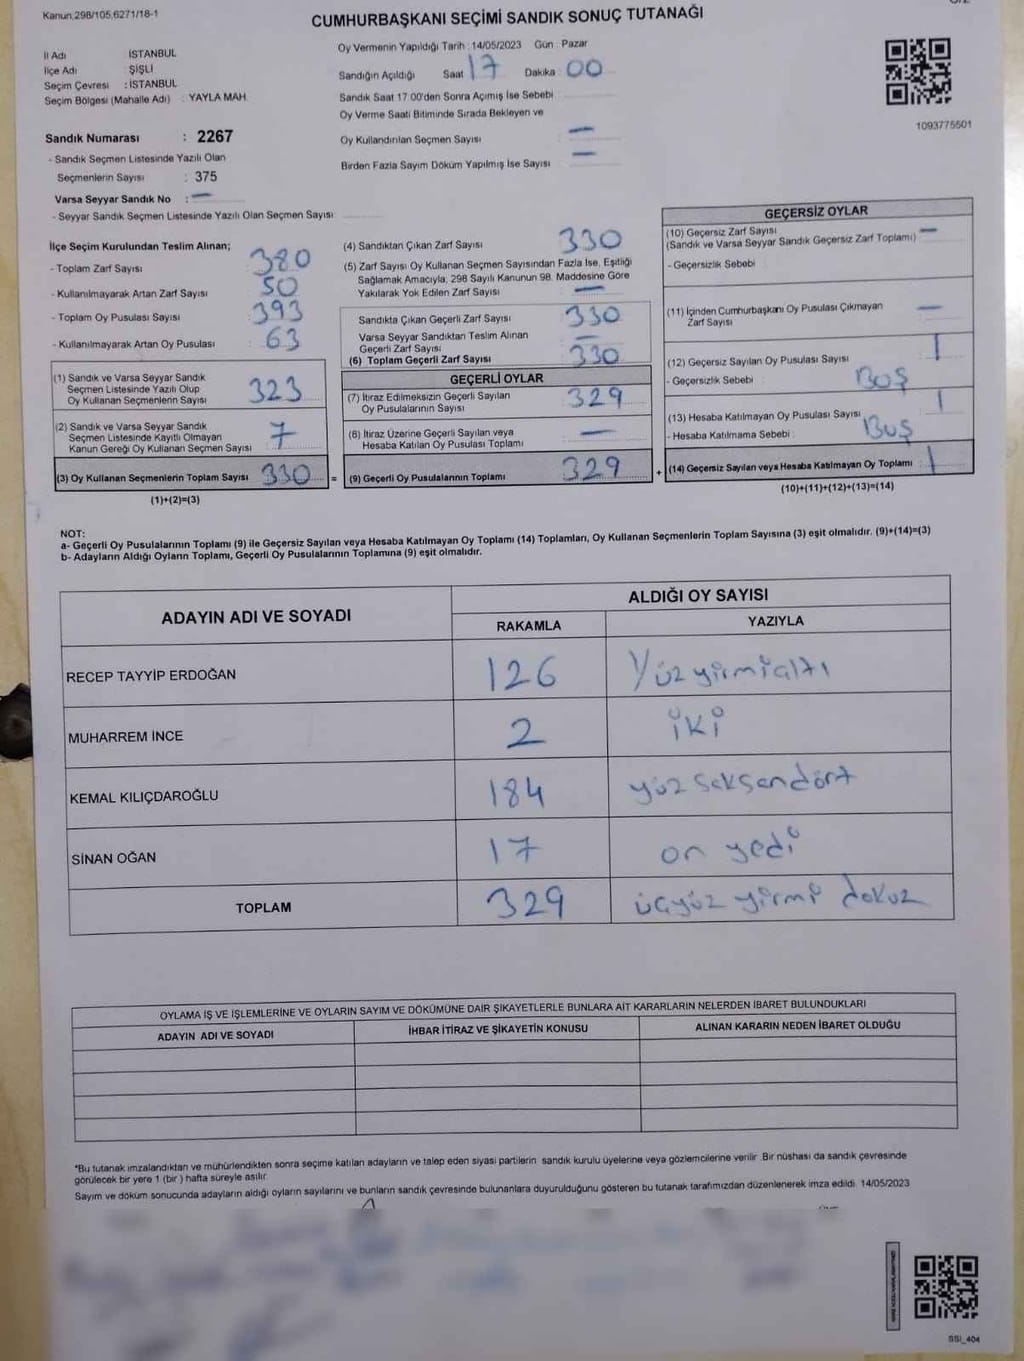 Kanun,298/105,6271/18-1
CUMHURBAŞKANI SEÇİMİ SANDIK SONUÇ TUTANAĞI
İl Adı İSTANBUL
İlçe Adı : ŞİŞLİ
Seçim Çevresi : İSTANBUL
Seçim Bölgesi (Mahalle Adı) : YAYLA MAH.
Oy Vermenin Yapıldığı Tarih : 14/05/2023 Gün : Pazar
Sandığın Açıldığı Saat 17 Dakika : 00
Sandık Saat 17 00'den Sonra Açımış İse Sebebi
Oy Verme Saati Bitiminde Sırada Bekleyen ve
Oy Kullandırılan Seçmen Sayısı –
Birden Fazla Sayım Döküm Yapılmış İse Sayısı –
1093775501
Sandık Numarası : 2267
- Sandık Seçmen Listesinde Yazılı Olan
Seçmenlerin Sayısı : 375
Varsa Seyyar Sandık No : –
- Seyyar Sandık Seçmen Listesinde Yazılı Olan Seçmen Sayısı
İlçe Seçim Kurulundan Teslim Alınan;
- Toplam Zarf Sayısı 380
- Kullanılmayarak Artan Zarf Sayısı 50
- Toplam Oy Pusulası Sayısı 393
- Kullanılmayarak Artan Oy Pusulası 63
(1) Sandık ve Varsa Seyyar Sandık
Seçmen Listesinde Yazılı Olup
Oy Kullanan Seçmenlerin Sayısı 323
(2) Sandık ve Varsa Seyyar Sandık
Seçmen Listesinde Kayıtlı Olmayan
Kanun Gereği Oy Kullanan Seçmen Sayısı 7
(3) Oy Kullanan Seçmenlerin Toplam Sayısı 330 =
(1)+(2)=(3)
(4) Sandıktan Çıkan Zarf Sayısı 330
(5) Zarf Sayısı Oy Kullanan Seçmen Sayısından Fazla İse, Eşitliği
Sağlamak Amacıyla, 298 Sayılı Kanunun 98. Maddesine Göre
Yakılarak Yok Edilen Zarf Sayısı –
Sandıkta Çıkan Geçerli Zarf Sayısı 330
Varsa Seyyar Sandıktan Teslim Alınan
Geçerli Zarf Sayısı –
(6) Toplam Geçerli Zarf Sayısı 330
GEÇERLİ OYLAR
(7) İtiraz Edilmeksizin Geçerli Sayılan
Oy Pusulalarının Sayısı 329
(8) İtiraz Üzerine Geçerli Sayılan veya
Hesaba Katılan Oy Pusulası Toplamı –
(9) Geçerli Oy Pusulalarının Toplamı 329 +
GEÇERSİZ OYLAR
(10) Geçersiz Zarf Sayısı –
(Sandık ve Varsa Seyyar Sandık Geçersiz Zarf Toplamı)
- Geçersizlik Sebebi
(11) İçinden Cumhurbaşkanı Oy Pusulası Çıkmayan
Zarf Sayısı –
(12) Geçersiz Sayılan Oy Pusulası Sayısı 1
- Geçersizlik Sebebi : BOŞ
(13) Hesaba Katılmayan Oy Pusulası Sayısı 1
- Hesaba Katılmama Sebebi : BUŞ
(14) Geçersiz Sayılan veya Hesaba Katılmayan Oy Toplamı 1
(10)+(11)+(12)+(13)=(14)
NOT:
a- Geçerli Oy Pusulalarının Toplamı (9) ile Geçersiz Sayılan veya Hesaba Katılmayan Oy Toplamı (14) Toplamları, Oy Kullanan Seçmenlerin Toplam Sayısına (3) eşit olmalıdır. (9)+(14)=(3)
b- Adayların Aldığı Oyların Toplamı, Geçerli Oy Pusulalarının Toplamına (9) eşit olmalıdır.
ADAYIN ADI VE SOYADI ALDIĞI OY SAYISI
RAKAMLA YAZIYLA
RECEP TAYYİP ERDOĞAN 126 Yüz yirmi altı
MUHARREM İNCE 2 iki
KEMAL KILIÇDAROĞLU 184 yüz seksendört
SİNAN OĞAN 17 on yedi
TOPLAM 329 üçyüz yirmi dokuz
OYLAMA İŞ VE İŞLEMLERİNE VE OYLARIN SAYIM VE DÖKÜMÜNE DAİR ŞİKAYETLERLE BUNLARA AİT KARARLARIN NELERDEN İBARET BULUNDUKLARI
ADAYIN ADI VE SOYADI İHBAR İTİRAZ VE ŞİKAYETİN KONUSU ALINAN KARARIN NEDEN İBARET OLDUĞU
*Bu tutanak imzalandıktan ve mühürlendikten sonra seçime katılan adayların ve talep eden siyasi partilerin sandık kurulu üyelerine veya gözlemcilerine verilir. Bir nüshası da sandık çevresinde
görülecek bir yere 1 (bir) hafta süreyle asılır.
Sayım ve döküm sonucunda adayların aldığı oyların sayılarını ve bunların sandık çevresinde bulunanlara duyurulduğunu gösteren bu tutanak tarafımızdan düzenlenerek imza edildi. 14/05/2023
SSI_404